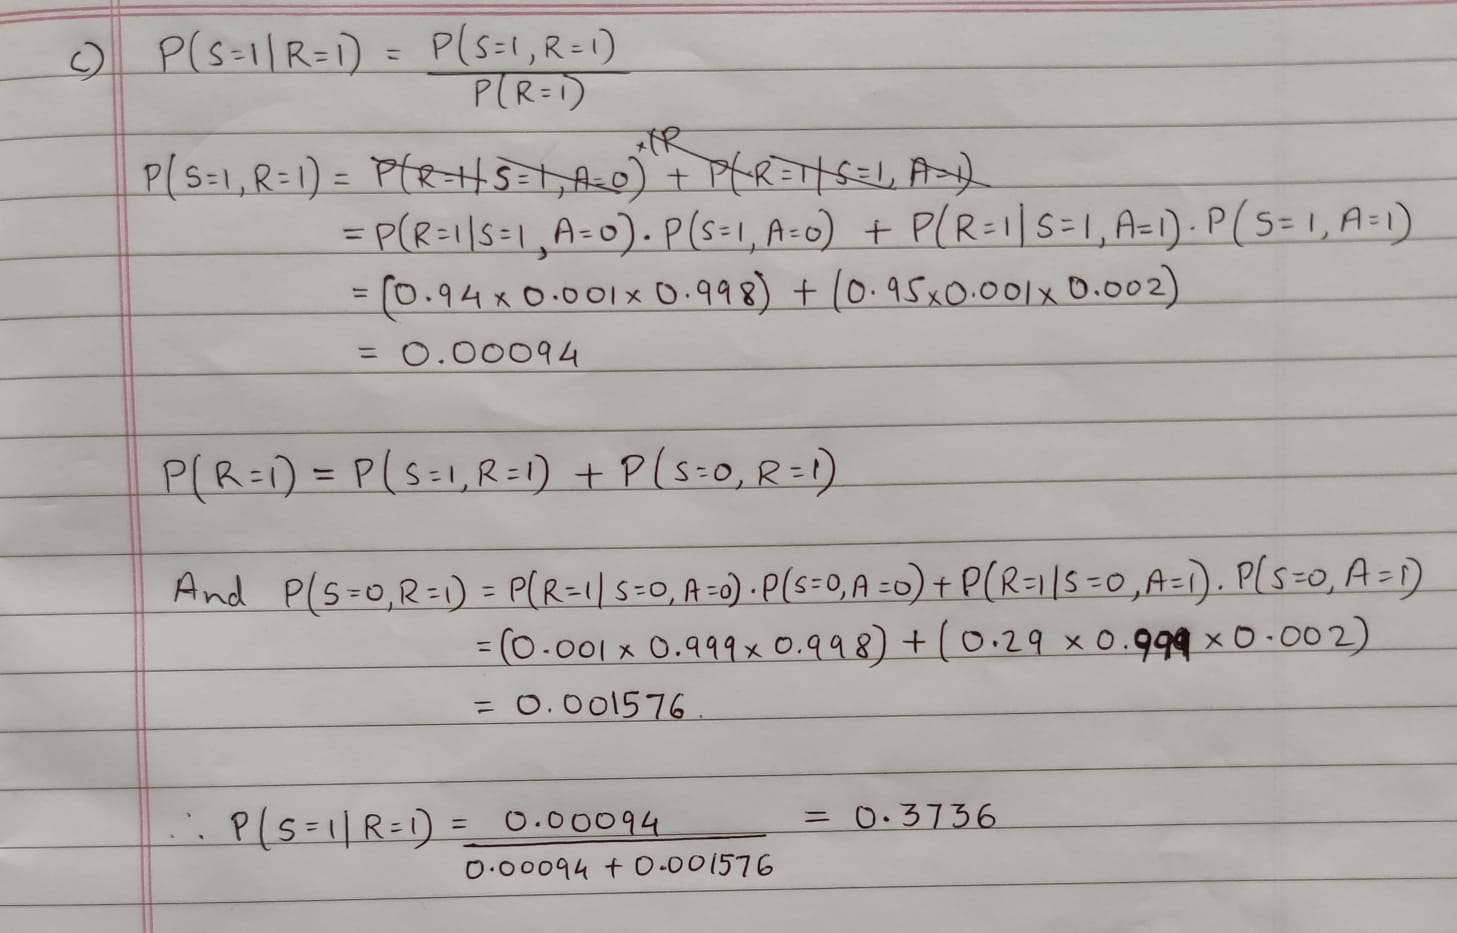 c) P(S=1|R=1) = P(S=1, R=1)
P(R=1)
P(S=1, R=1) = P(R=1|S=1, A=0) x P(R + P(R=1|S=1, A=1)
= P(R=1|S=1, A=0). P(S=1, A=0) + P(R=1|S=1, A=1). P(S=1, A=1)
= (0.94 x 0.001 x 0.998) + (0.95 x 0.001 x 0.002)
= 0.00094
P(R=1) = P(S=1, R=1) + P(S=0, R=1)
And P(S=0, R=1) = P(R=1|S=0, A=0). P(S=0, A=0) + P(R=1|S=0, A=1). P(S=0, A=1)
= (0.001 x 0.999 x 0.998) + (0.29 x 0.999 x 0.002)
= 0.001576.
∴ P(S=1|R=1) = 0.00094 = 0.3736
0.00094 + 0.001576